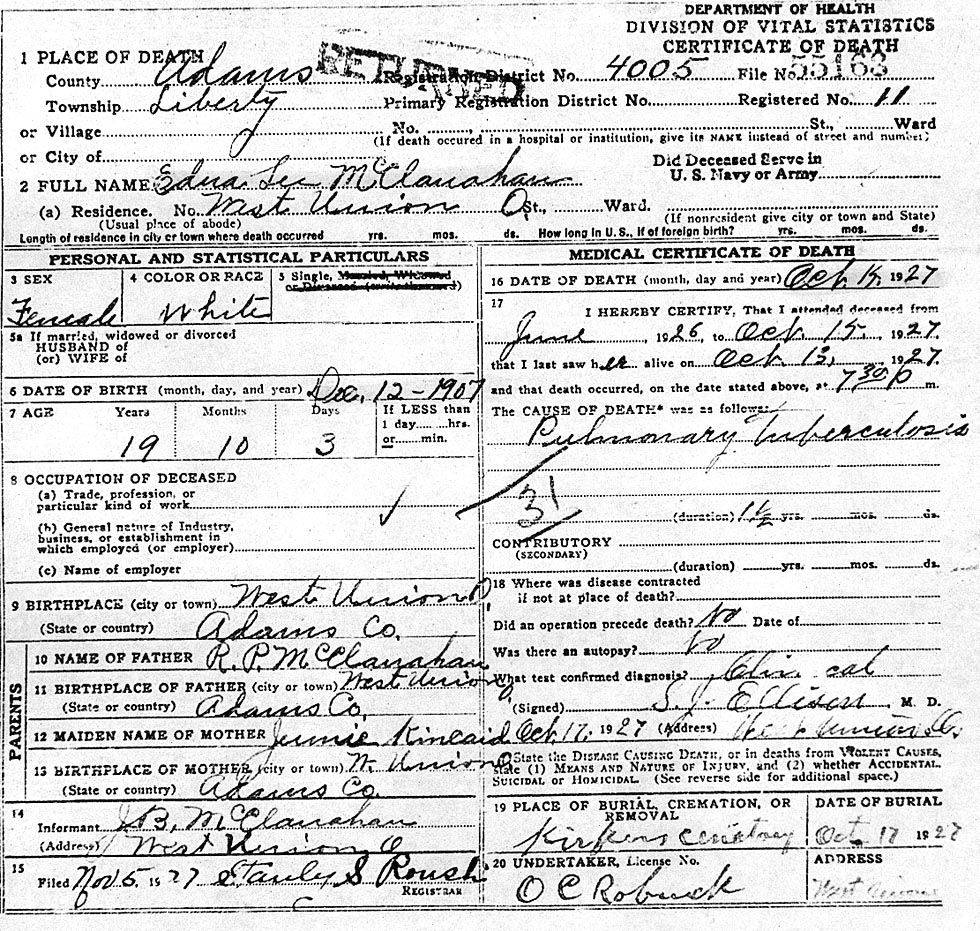 DEPARTMENT OF HEALTH
DIVISION OF VITAL STATISTICS
CERTIFICATE OF DEATH
RETURNED
1 PLACE OF DEATH
County Adams Registration District No. 4005 File No. 55163
Township Liberty Primary Registration District No. Registered No. 11
or Village No. , St., Ward
(If death occured in a hospital or institution, give its NAME instead of street and number)
or City of
Did Deceased Serve in
U. S. Navy or Army
2 FULL NAME Edna Lee McClanahan
(a) Residence. No. West Union O. St., Ward.
(Usual place of abode) (If nonresident give city or town and State)
Length of residence in city or town where death occurred yrs. mos. ds. How long in U. S., if of foreign birth? yrs. mos. ds.
PERSONAL AND STATISTICAL PARTICULARS
3 SEX 4 COLOR OR RACE 5 Single, Married, Widowed
or Divorced (write the word)
Female White
5a If married, widowed or divorced
HUSBAND of
(or) WIFE of
6 DATE OF BIRTH (month, day, and year) Dec. 12-1907
7 AGE Years Months Days If LESS than
1 day hrs.
or min.
19 10 3
8 OCCUPATION OF DECEASED
(a) Trade, profession, or
particular kind of work
(b) General nature of Industry,
business, or establishment in
which employed (or employer)
(c) Name of employer
9 BIRTHPLACE (city or town) West Union O
(State or country) Adams Co.
PARENTS
10 NAME OF FATHER R. P. McClanahan
11 BIRTHPLACE OF FATHER (city or town) West Union O.
(State or country) Adams Co.
12 MAIDEN NAME OF MOTHER Jennie Kincaid
13 BIRTHPLACE OF MOTHER (city or town) W. Union O
(State or country) Adams Co.
14
Informant J. B. McClanahan
(Address) West Union O
15
Filed Nov 5. 1927 Stanly S Roush
REGISTRAR
MEDICAL CERTIFICATE OF DEATH
16 DATE OF DEATH (month, day and year) Oct 15. 1927
17
I HEREBY CERTIFY, That I attended deceased from
June , 1926, to Oct. 15, 1927
that I last saw her alive on Oct 13, 1927.
and that death occurred, on the date stated above, at 7 30 P m.
The CAUSE OF DEATH* was as follows:
Pulmonary Tuberculosis
31
(duration) 1 1/2 yrs. mos. ds.
CONTRIBUTORY
(SECONDARY)
(duration) yrs. mos. ds.
18 Where was disease contracted
if not at place of death?
Did an operation precede death? No Date of
Was there an autopsy? No
What test confirmed diagnosis? Clinical
(Signed) S. J. Ellison M. D.
Oct. 17. 1927 (Address) West Union O.
*State the DISEASE CAUSING DEATH, or in deaths from VIOLENT CAUSES,
state (1) MEANS AND NATURE OF INJURY, and (2) whether ACCIDENTAL,
SUICIDAL or HOMICIDAL. (See reverse side for additional space.)
19 PLACE OF BURIAL, CREMATION, OR
REMOVAL
DATE OF BURIAL
Oct 17 1927
20 UNDERTAKER, License No. ADDRESS
O C Robuck West Union